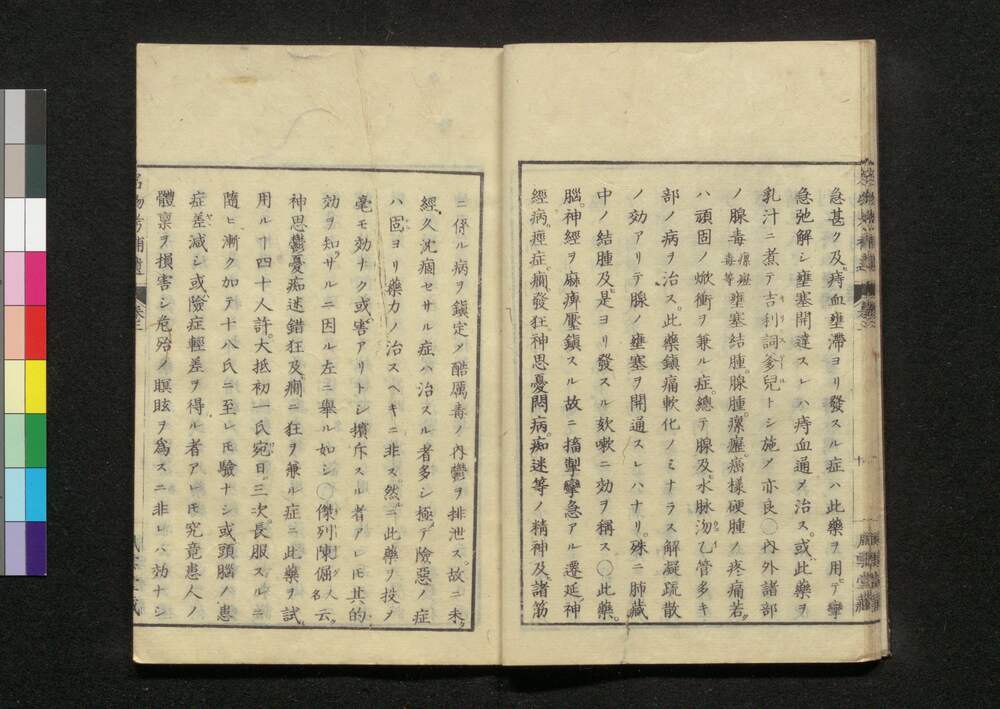 急甚ク及痔血壅滯ヨリ發スル症ハ此藥ヲ用テ攣
急弛解シ壅塞開達スレハ痔血通メ治ス。或此藥ヲ
乳汁ニ煮テ吉利詞爹兒トシ施メ亦良〇內外諸部
ノ腺毒瘰癧毒等壅塞結腫。腺腫。瘰癧。癌樣硬腫ノ疼痛若
ハ頑固ノ焮衝ヲ兼ル症。總テ腺及水脉沕乙管多キ
部ノ病ヲ治ス。此藥鎮痛軟化ノミナラス解凝疏散
ノ効アリテ腺ノ壅塞ヲ開通スレハナリ。殊ニ肺藏
中ノ結腫及是ヨリ發スル欬嗽ニ効ヲ稱ス〇此藥。
腦。神經ヲ麻痺壓鎮スル故ニ搐掣攣急アル遷延神
經病。痙症。癇。發狂。神思憂悶病。痴迷等ノ精神及諸筋
ニ係ル病ヲ鎮定メ酷厲毒ノ內鬱ヲ排泄ス。故ニ未
經久沈痼セサル症ハ治スル者多シ極テ險惡ノ症
ハ固ヨリ藥力ノ治スヘキニ非ス。然ニ此藥ヲ投メ
毫モ効ナク或害アリトシ擯斥スル者アレ𪜈其的
効ヲ知サルニ因ル左ニ舉ル如シ〇傑列陳倔人名云。
神思鬱憂痴迷錯狂及癇ニ狂ヲ兼ル症ニ此藥ヲ試
用ルヿ四十人許。大抵初一氏宛日。三次。長服スルニ
隨ヒ漸ク加テ十八氏ニ至レ𪜈驗ナシ或頭腦ノ患
症差減シ或險症輕差ヲ得ル者アレ𪜈究竟患人ノ
體稟ヲ損害シ危殆ノ瞑眩ヲ爲スニ非レハ効ナシ
名物考補遺 卷三